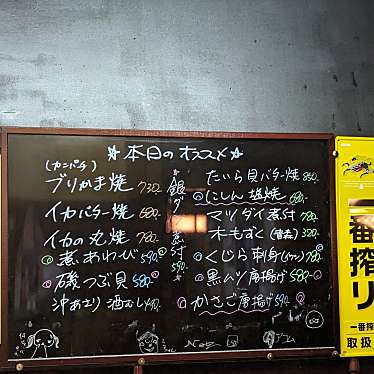 ☆本日のオススメ☆
(カンパチ)
ブリかま焼 730
イカバター焼 680
イカの丸焼 780
煮あわび 590
磯つぶ貝 580
沖あさり酒むし
銀ダラ煮付 590
たいら貝バター焼 850
にしん塩焼 680
マツダイ煮付 780
木もずく
くじら刺身 780
黒ムツ唐揚げ 580
かさご唐揚げ 590
一番搾り
一番搾
取扱